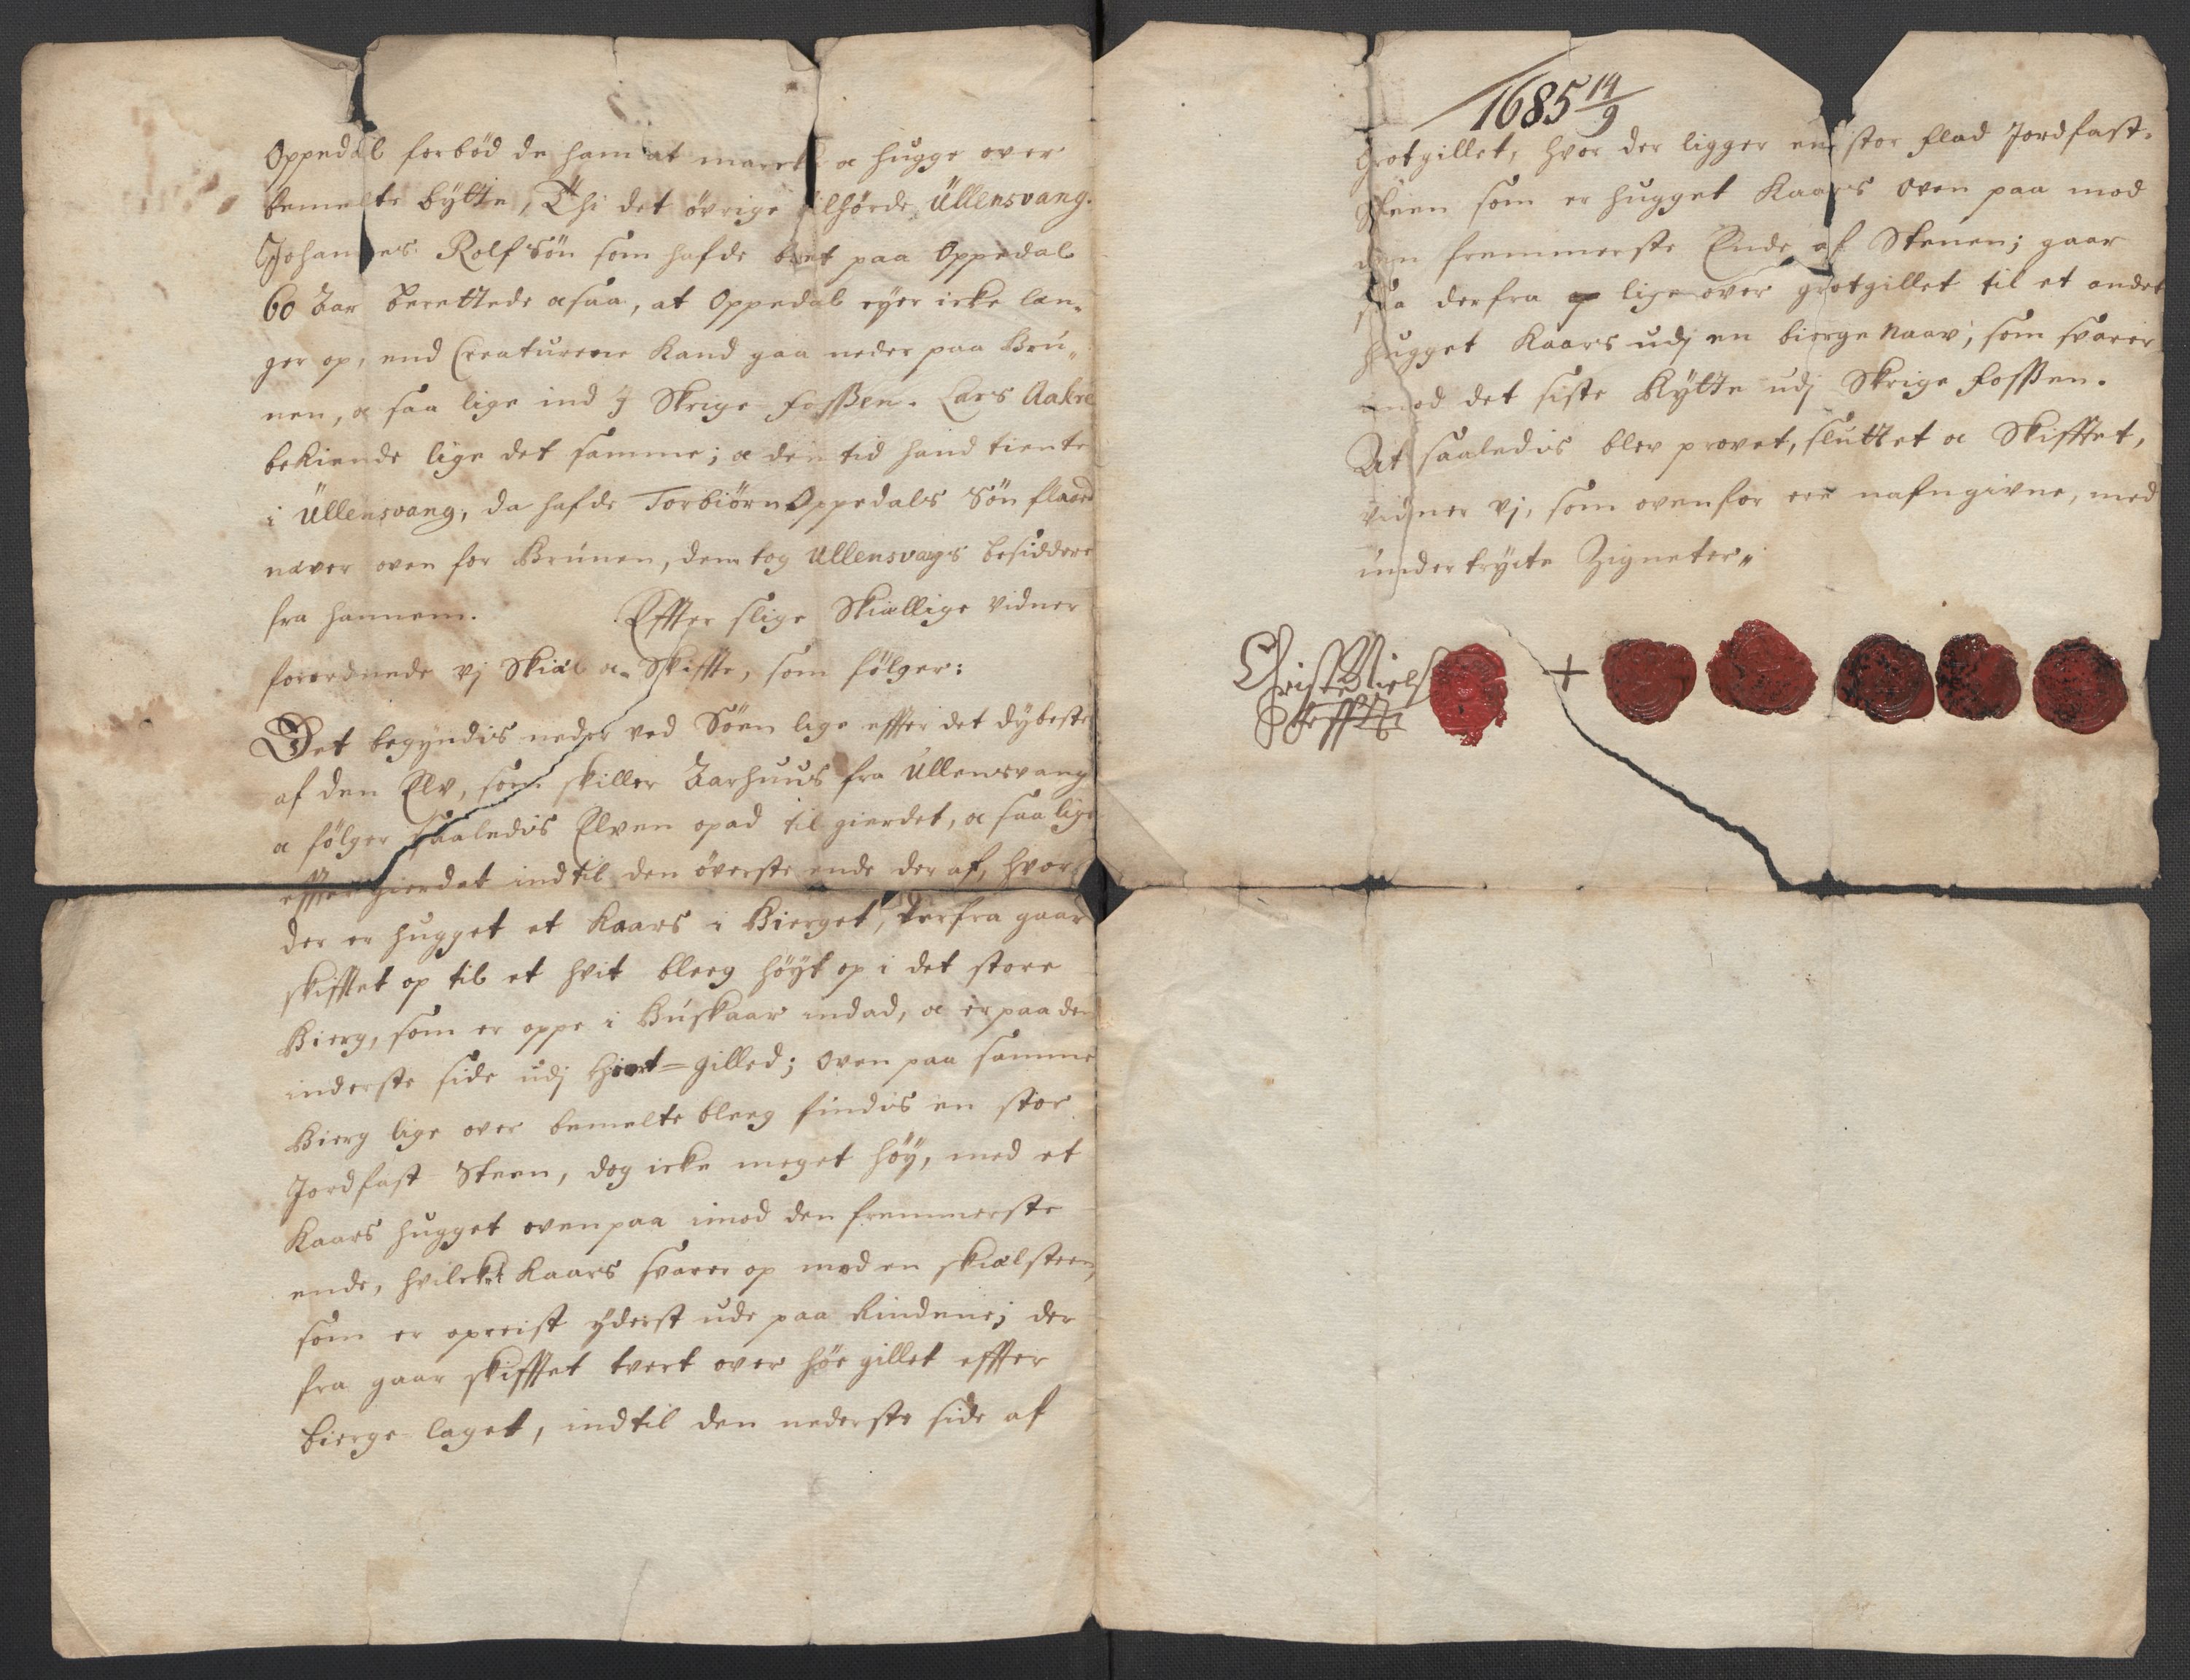 Oppedal forbød de ham at marcke α hugge over
bemelte bytte, Thi det øvrige tilhørde Üllensvang.
Johannes Rolfsön som hafde boet paa Oppedal
60 Aar berettede α saa, at Oppedal eyer icke læn„
ger op, end Creaturene Kand gaa neder paa Brú„
nen, α saa lige ind j Skrige Fossen. Lars Aakre
bekiende lige det samme; α den tid hand tiente
i Üllensvang, da hafde Torbiørn Oppedals Søn flaaed
næver oven for Brúnen, dem tog Ullensvangs besiddere
fra hannem. Effter slige Skiællige Vidner
forordnede vj Skiæl α Skiffte, som følger:
Det begyndis neder ved Søen lige effter det dybeste
af den Elv, som skiller Aarhuus fra Üllensvang
α følger saaledis Elven opad til gierdet, α saa lige
effter gierdet indtil den överste ende der af, hvor
der er hugget et Kaars i Bierget, derfra gaar
skifftet op til et hvit bleeg höyt op i det store
Bierg, som er oppe i Búskaar indad, α er paa den
inderste side udj Hiort=gilled; Oven paa samme
Bierg lige over bemelte bleeg findis en stor
Jordfast Steen, dog icke meget høy, med et
Kaars hugget oven paa imod den fremmerste
ende, hvilcket Kaars svarer op med en skiælsteen,
som er opreist yderst ude paa Rindene; der
fra gaar skifftet tvert over Hør gillet effter
bierge laget, indtil den nederste side af
1685 14/9
Grotgillet, hvor der ligger en stor flad Jordfast„
Steen som er hugget Kaars oven paa mod
den fremmerste Ende af Stenen; gaar
saa derfra lige over grotgillet til et andet
hugget Kaars udj en bierge Naav, som svarer
imod det siste Bytte udj Skrige Fossen.
At saaledis blev provet, sluttet α Skifftet,
vidner vj, som ovenfor ere nafngivne, med
undertrycte Zigneter„
+